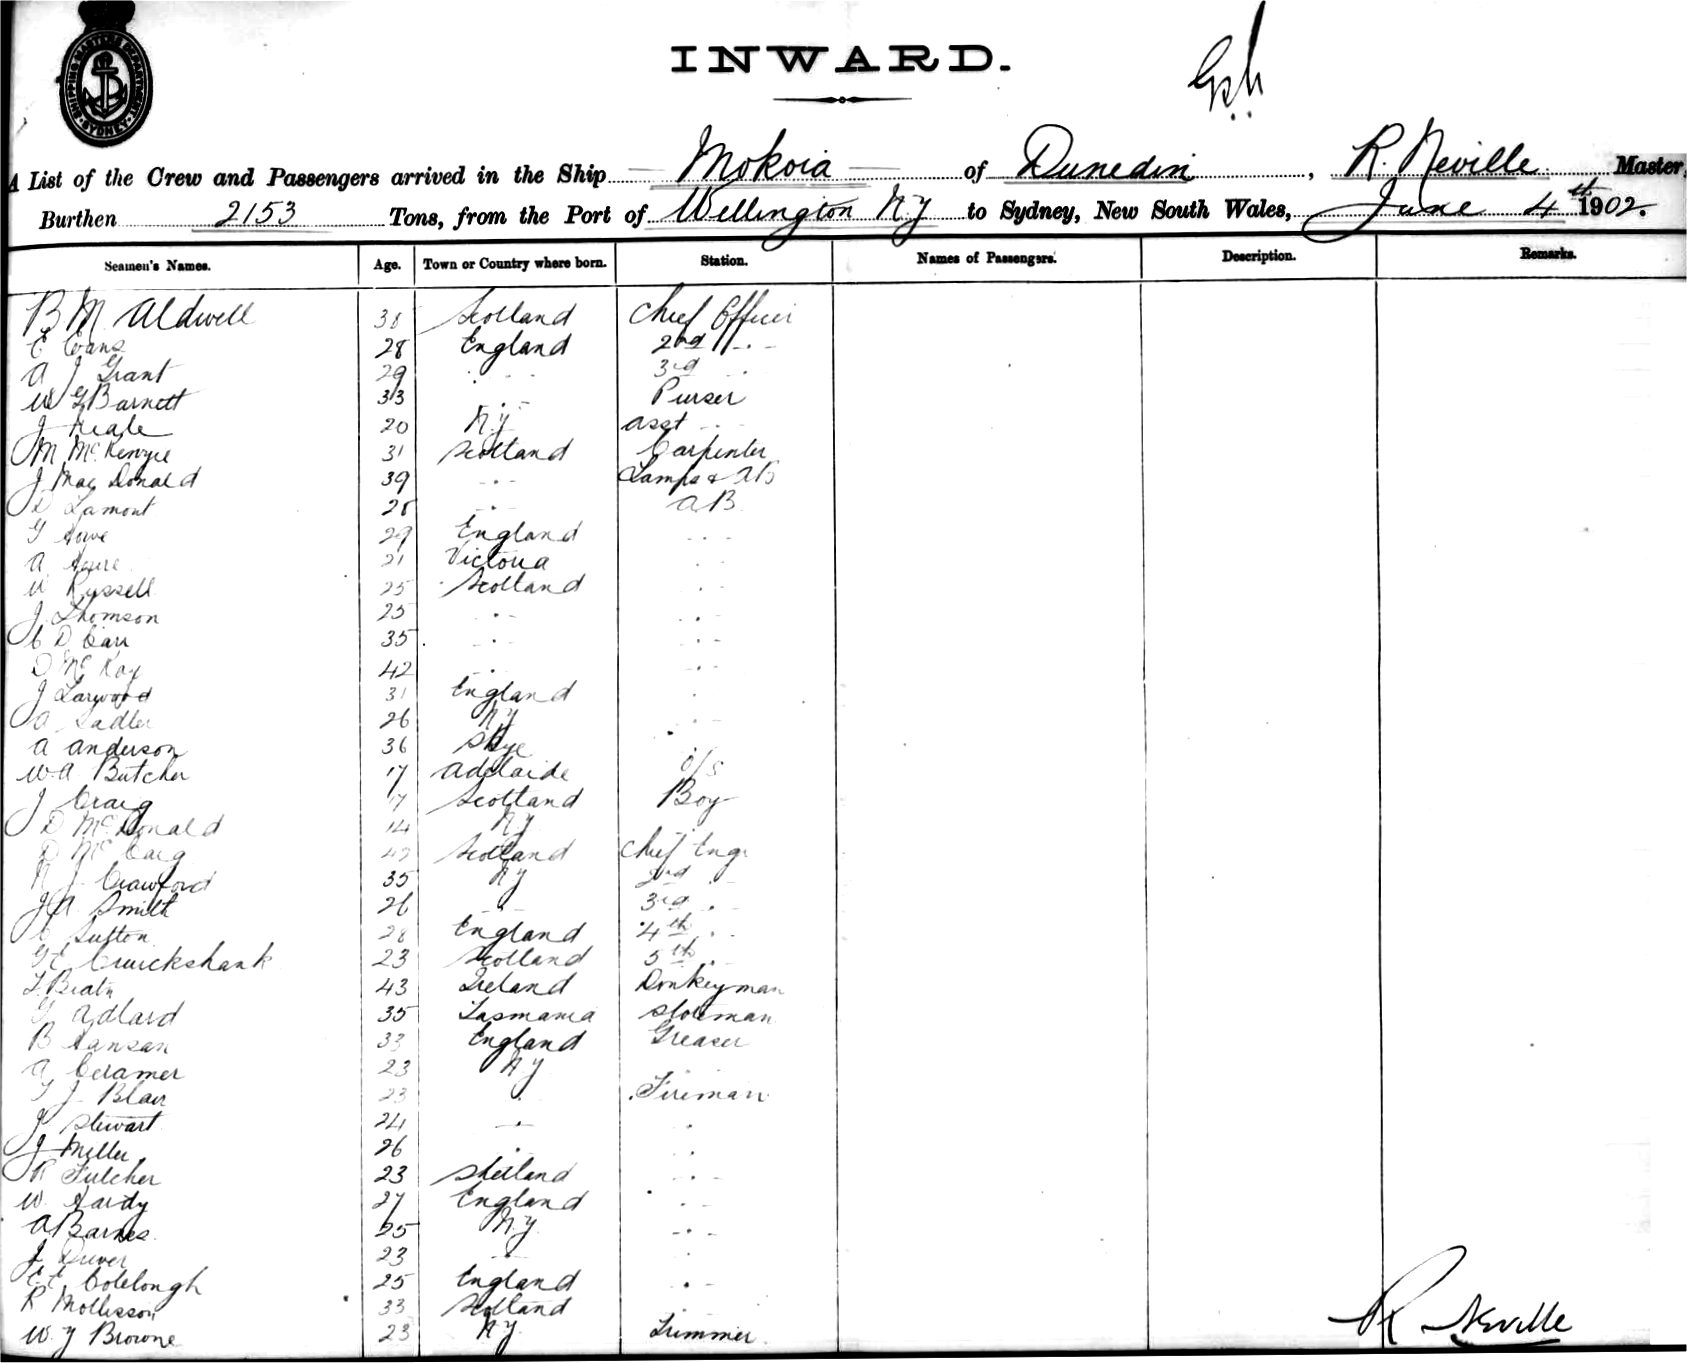 SHIPPING MASTERS DEPARTMENT SYDNEY
INWARD.
A List of the Crew and Passengers arrived in the Ship Mokoia of Dunedin, R. Neville Master,
Burthen 2153 Tons, from the Port of Wellington NZ to Sydney, New South Wales, June 4th 1902.
Seamen's Names. Age. Town or Country where born. Station. Names of Passengers. Description. Remarks.
B M Aldwell 38 Scotland Chief Officer
E Evans 28 England 2nd "
A J Grant 29 " 3rd "
W G Barnett 33 " Purser
J Neale 20 NZ asst "
M McKenzie 31 Scotland Carpenter
J MacDonald 39 " Lamps & AB
D Lamont 28 " AB
G Howe 29 England "
A 21 Victoria "
W Russell 25 Scotland "
J Thomson 25 " "
C D Carr 35 " "
D McKay 42 " "
J Larwood 31 England "
A Sadler 26 NZ "
A Anderson 36 Skye "
W A Butcher 17 Adelaide O/S
J Craig 17 Scotland Boy
D McDonald 14 NZ
D McCaig Scotland Chief Engr
N J Crawford 35 NZ 2nd "
J A Smith 26 " 3rd "
C Sutton 28 England 4th "
G E Cruickshank 23 Scotland 5th "
43 Ireland Donkeyman
G Adlard 35 Tasmania Storeman
B Hansan 33 England Greaser
A Ceramer 23 NZ
T J Blair 23 " Fireman
J Stewart 24 " "
J Miller 26 " "
R Fulcher 23 Shetland "
W Hardy 27 England "
A Barnes 25 NZ "
J Driver 23 "
E E Colclough 25 England "
R Mollisson 33 Scotland
W J Browne 23 NZ Trimmer
R Neville